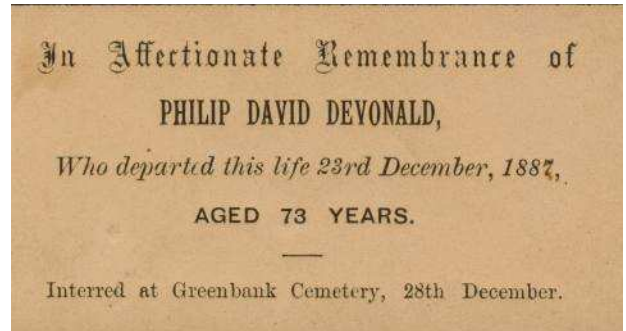 In Affectionate Remembrance of
PHILIP DAVID DEVONALD,
Who departed this life 23rd December, 1887,
AGED 73 YEARS.
Interred at Greenbank Cemetery, 28th December.